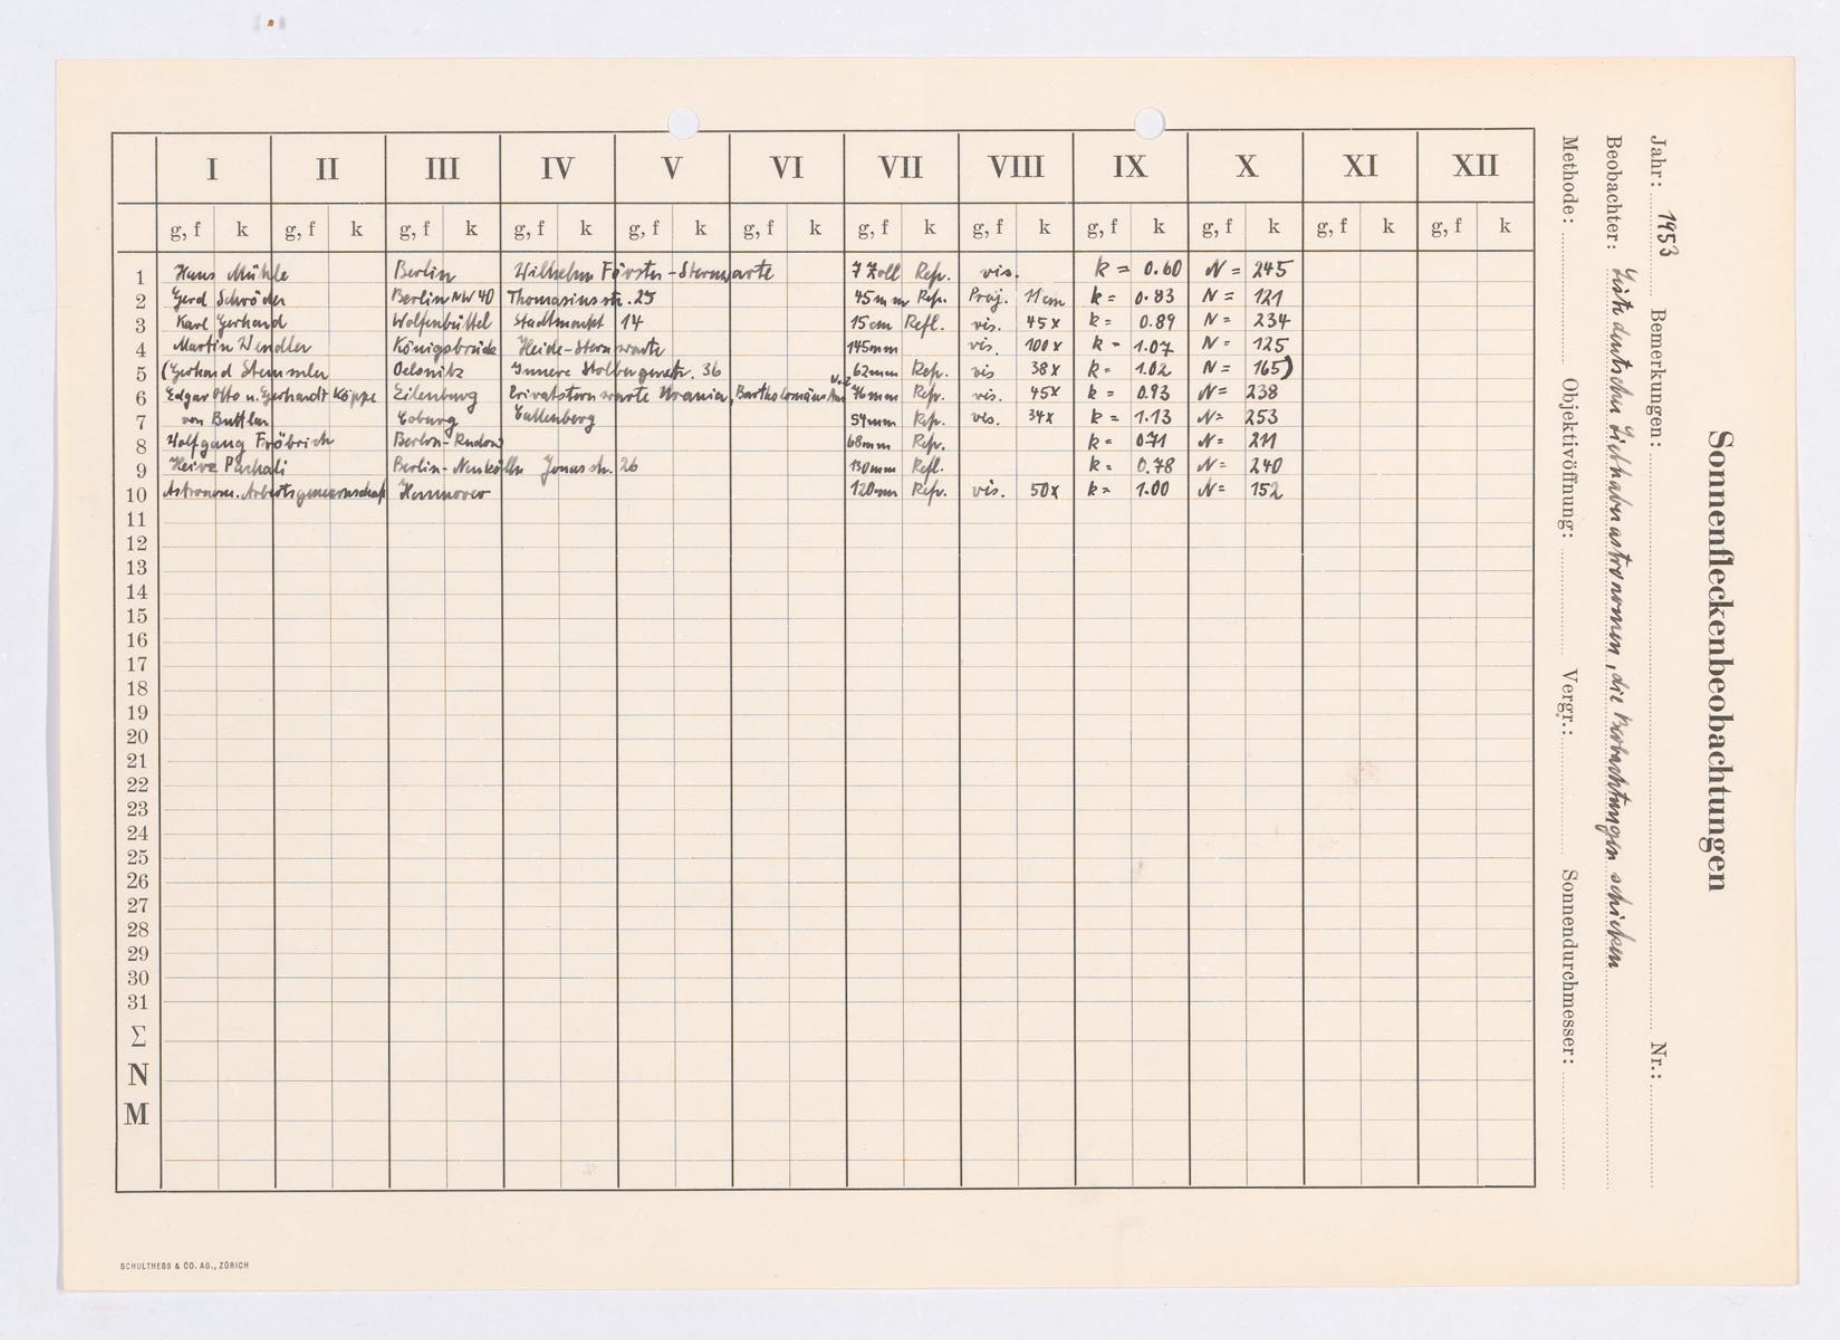 Sonnenfleckenbeobachtungen
Jahr: 1953 Bemerkungen: Nr.:
Beobachter: Liste deutscher Liebhaberastronomen, die Beobachtungen schicken
Methode: Objektivöffnung: Vergr.: Sonnendurchmesser:
I II III IV V VI VII VIII IX X XI XII
g, f k g, f k g, f k g, f k g, f k g, f k g, f k g, f k g, f k g, f k g, f k g, f k
1 Hans Mühle Berlin Wilhelm Förster-Sternwarte 7 Zoll Refr. vis. k = 0.60 N = 245
2 Gerd Schröder Berlin NW 40 Thomasiusstr. 25 45mm Refr. Proj. 11cm k = 0.83 N = 121
3 Karl Gerhard Wolfenbüttel Stadtmarkt 14 15cm Refl. vis. 45x k = 0.89 N = 234
4 Martin Wendler Königsbrück Heide-Sternwarte 145mm vis. 100x k = 1.07 N = 125
5 (Gerhard Stemmler Oelsnitz Innere Stolbergerstr. 36 62mm Refr. vis 38x k = 1.02 N = 165)
6 Edgar Otto u. Gerhardt Köppe Eilenburg Privatsternwarte Urania, 76mm Refr. vis. 45x k = 0.93 N = 238
7 von Buttlar Coburg Callenberg 54mm Refr. vis. 34x k = 1.13 N = 253
8 Wolfgang Fröbrich Berlin-Rudow 68mm Refr. k = 0.71 N = 211
9 Berlin-Neukölln Jonasstr. 26 130mm Refl. k = 0.78 N = 240
10 Astronom. Arbeitsgemeinschaft Hannover 120mm Refr. vis. 50x k = 1.00 N = 152
11
12
13
14
15
16
17
18
19
20
21
22
23
24
25
26
27
28
29
30
31
Σ
N
M
SCHULTHESS & CO. AG., ZÜRICH